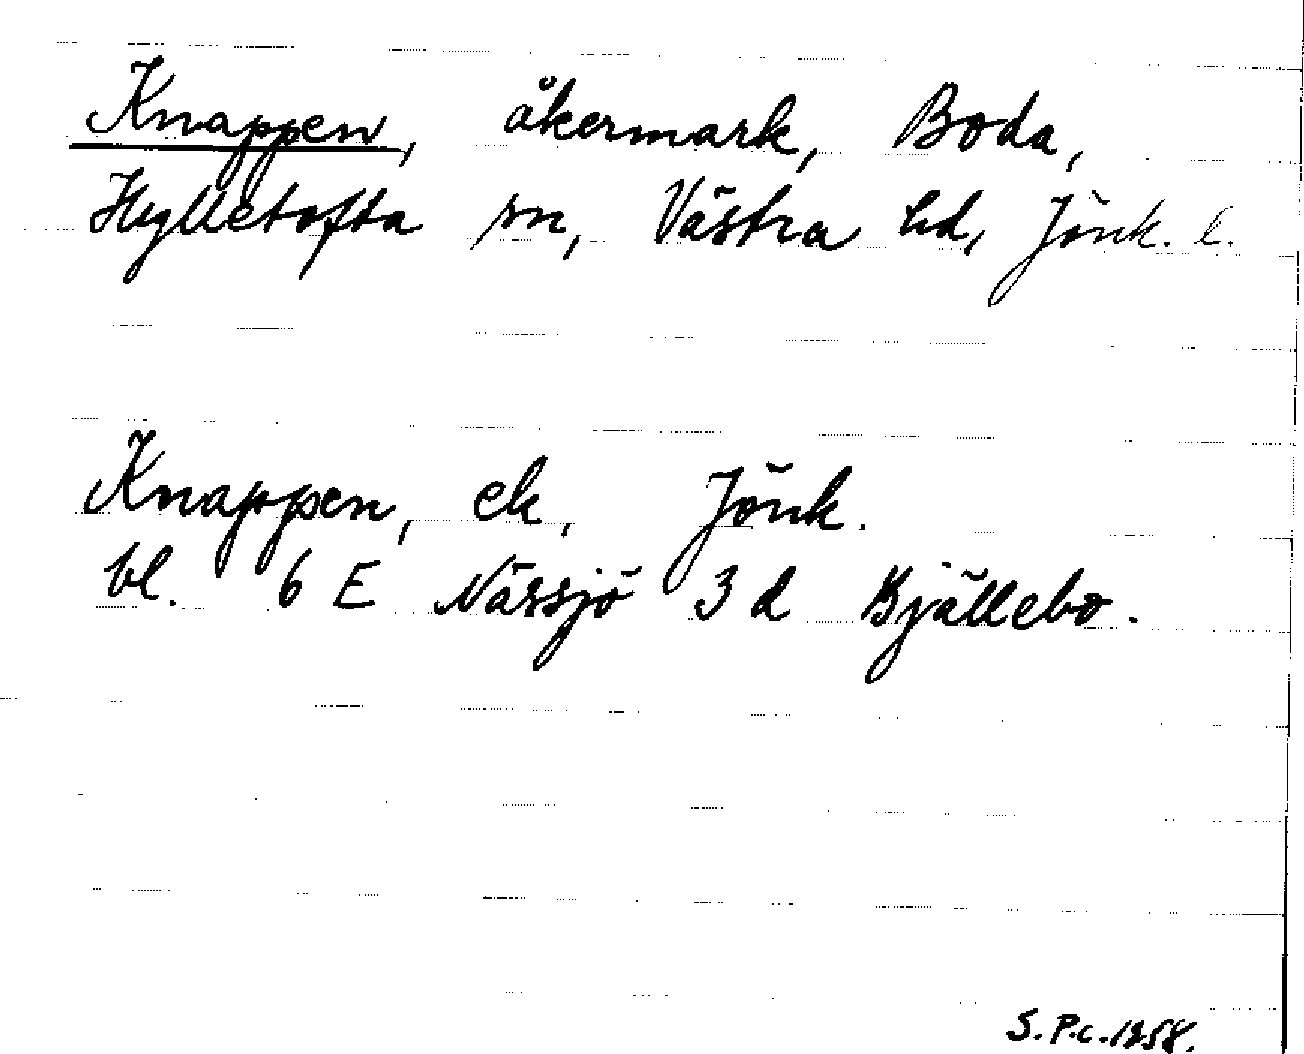 Knappen, åkermark, Boda,
Hylletofta sn, Västra hd, Jönk. l.
Knappen, ek, Jönk.
bl. 6 E Nässjö 3 d Bjällebo.
S. P.c. 1958.